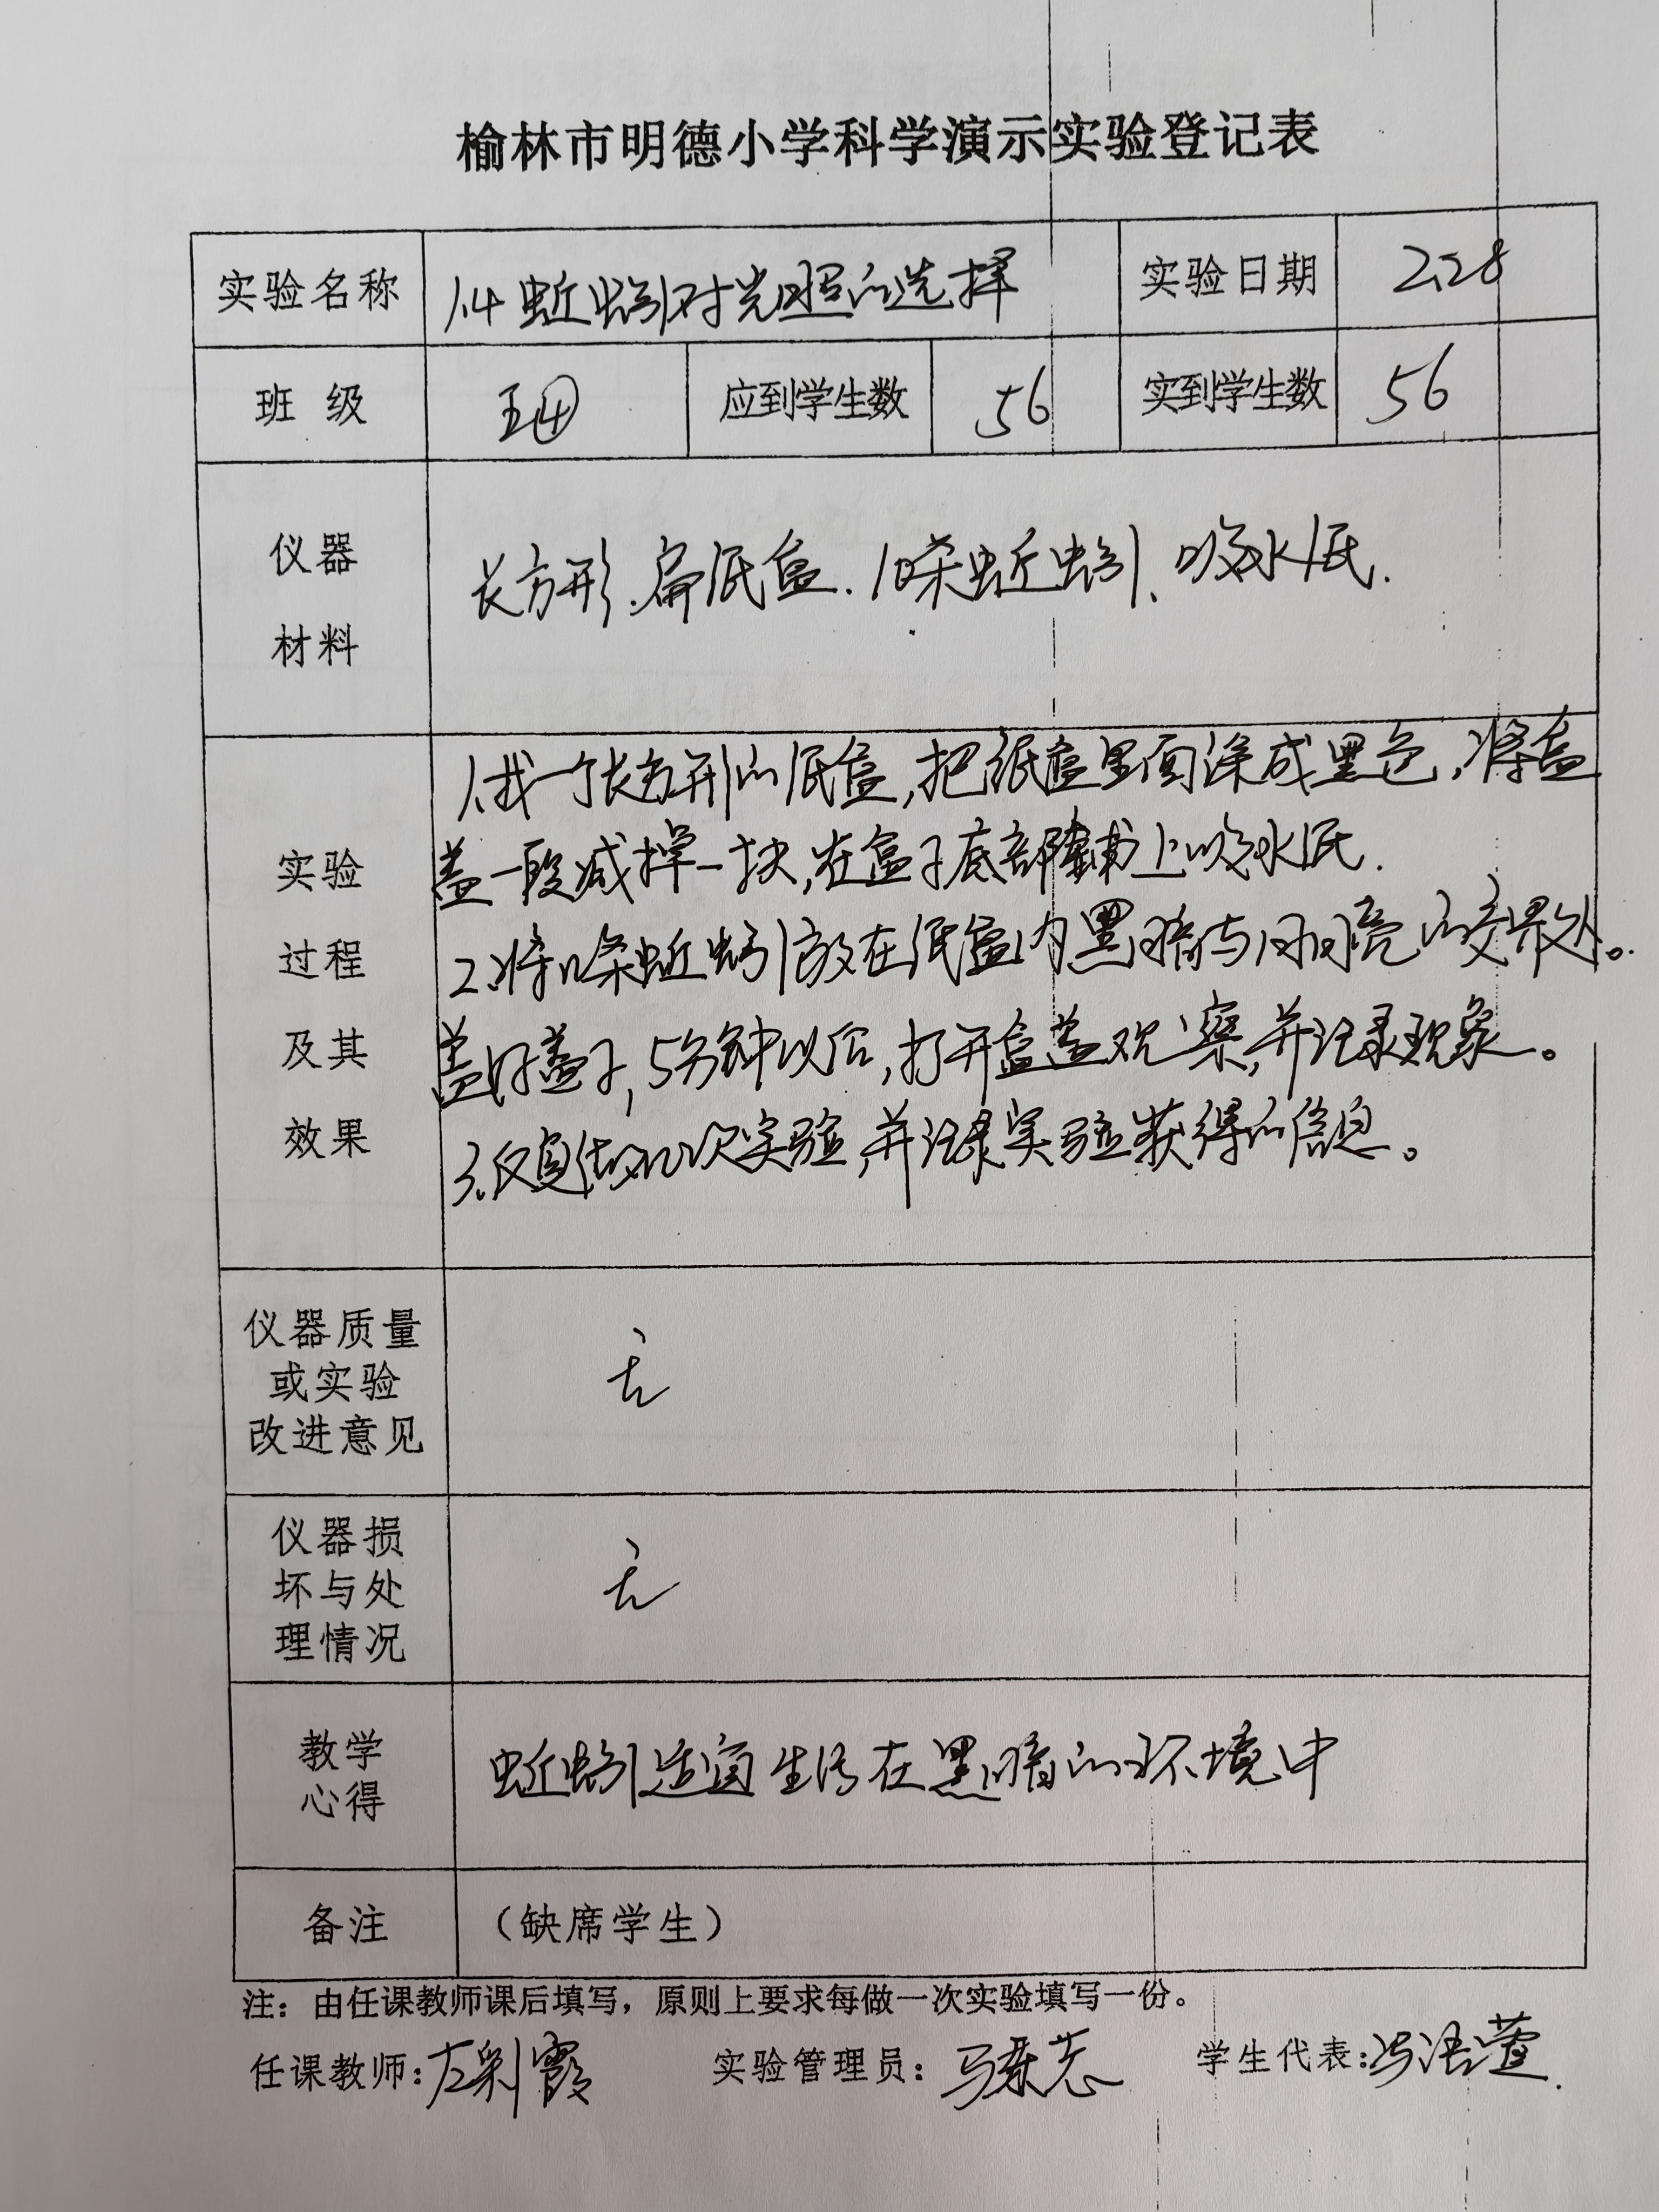 榆林市明德小学科学演示实验登记表
实验名称 1.4 蚯蚓对光照的选择 实验日期 2.28
班 级 五④ 应到学生数 56 实到学生数 56
仪器
材料
长方形.扁纸盒.10条蚯蚓、吸水纸.
实验
过程
及其
效果
1.找一个长方形的纸盒,把纸盒里面涂成黑色,将盒
盖一段减掉一块,在盒子底部铺上吸水纸.
2.将10条蚯蚓放在纸盒内黑暗与明亮的交界处。
盖好盖子,5分钟以后,打开盒盖观察,并记录现象。
3.反复做几次实验,并记录实验获得的信息。
仪器质量
或实验
改进意见
无
仪器损
坏与处
理情况
无
教学
心得
蚯蚓适宜生活在黑暗的环境中
备注 （缺席学生）
注：由任课教师课后填写，原则上要求每做一次实验填写一份。
任课教师: 左彩霞 实验管理员： 马 学生代表: 冯浩萱